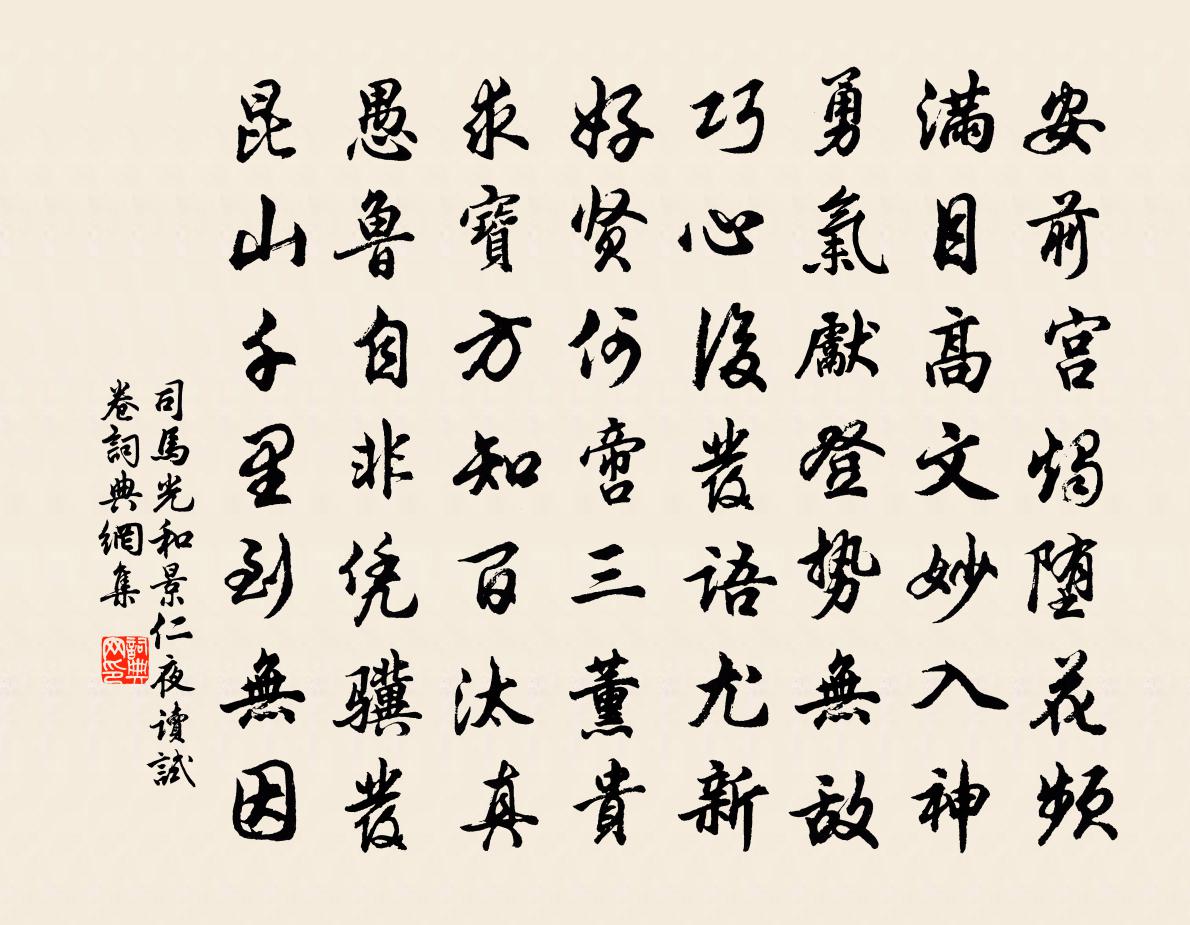 安前宫烛堕花频
满目高文妙入神
勇氣獻登势無敵
巧心後發語尤新
好贤何啻三薰貴
求寶方知百汰真
愚魯自非凭骥發
昆山千里到無因
司馬光和景仁夜讀試
卷詞典網集
詞典
网印